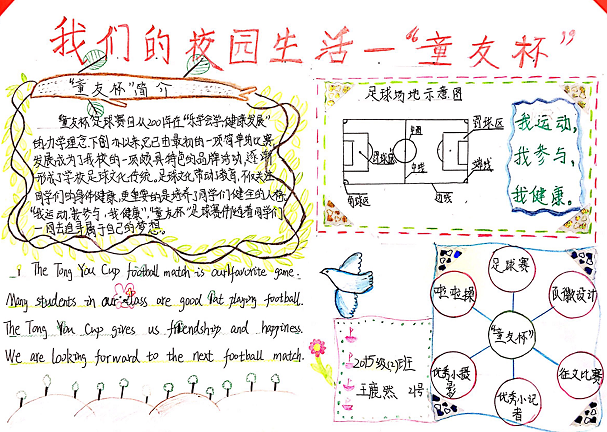 我们的校园生活—“童友杯”
“童友杯”简介
“童友杯”足球赛自从2001年在“乐学会学,健康发展”
的办学理念下创办以来已由最初的一项简单的比赛,
发展成为了我校的一项颇具特色的品牌活动,逐渐
形成了学校足球文化传统。足球文化带动了教育,不仅关注
同学们的身体健康,更重要的是培养了同学们健全的人格,
“我运动,我参与,我健康”,“童友杯”足球赛伴随着同学们
一同去追寻属于自己的梦想。
足球场地示意图
罚球区
中圈
罚球区
中线
端线
角球区
边线
我运动,
我参与,
我健康。
The Tong You Cup football match is our favorite game.
Many students in our class are good at playing football.
The Tong You Cup gives us friendship and happiness.
We are looking forward to the next football match.
2015级(2)班
王宸熙 2号
“童友杯”
足球赛
队徽设计
征文比赛
优秀小记
者
优秀小摄
影
啦啦操